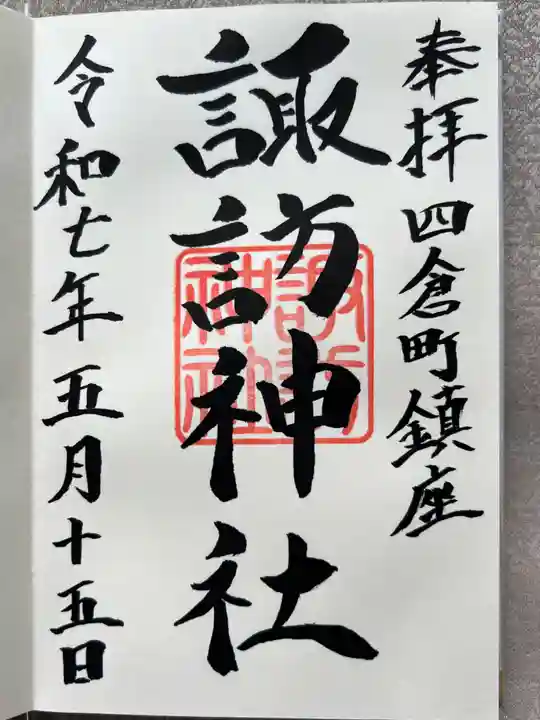 奉拝 四倉町鎮座
諏訪神社
諏訪
神社
令和七年 五月十五日